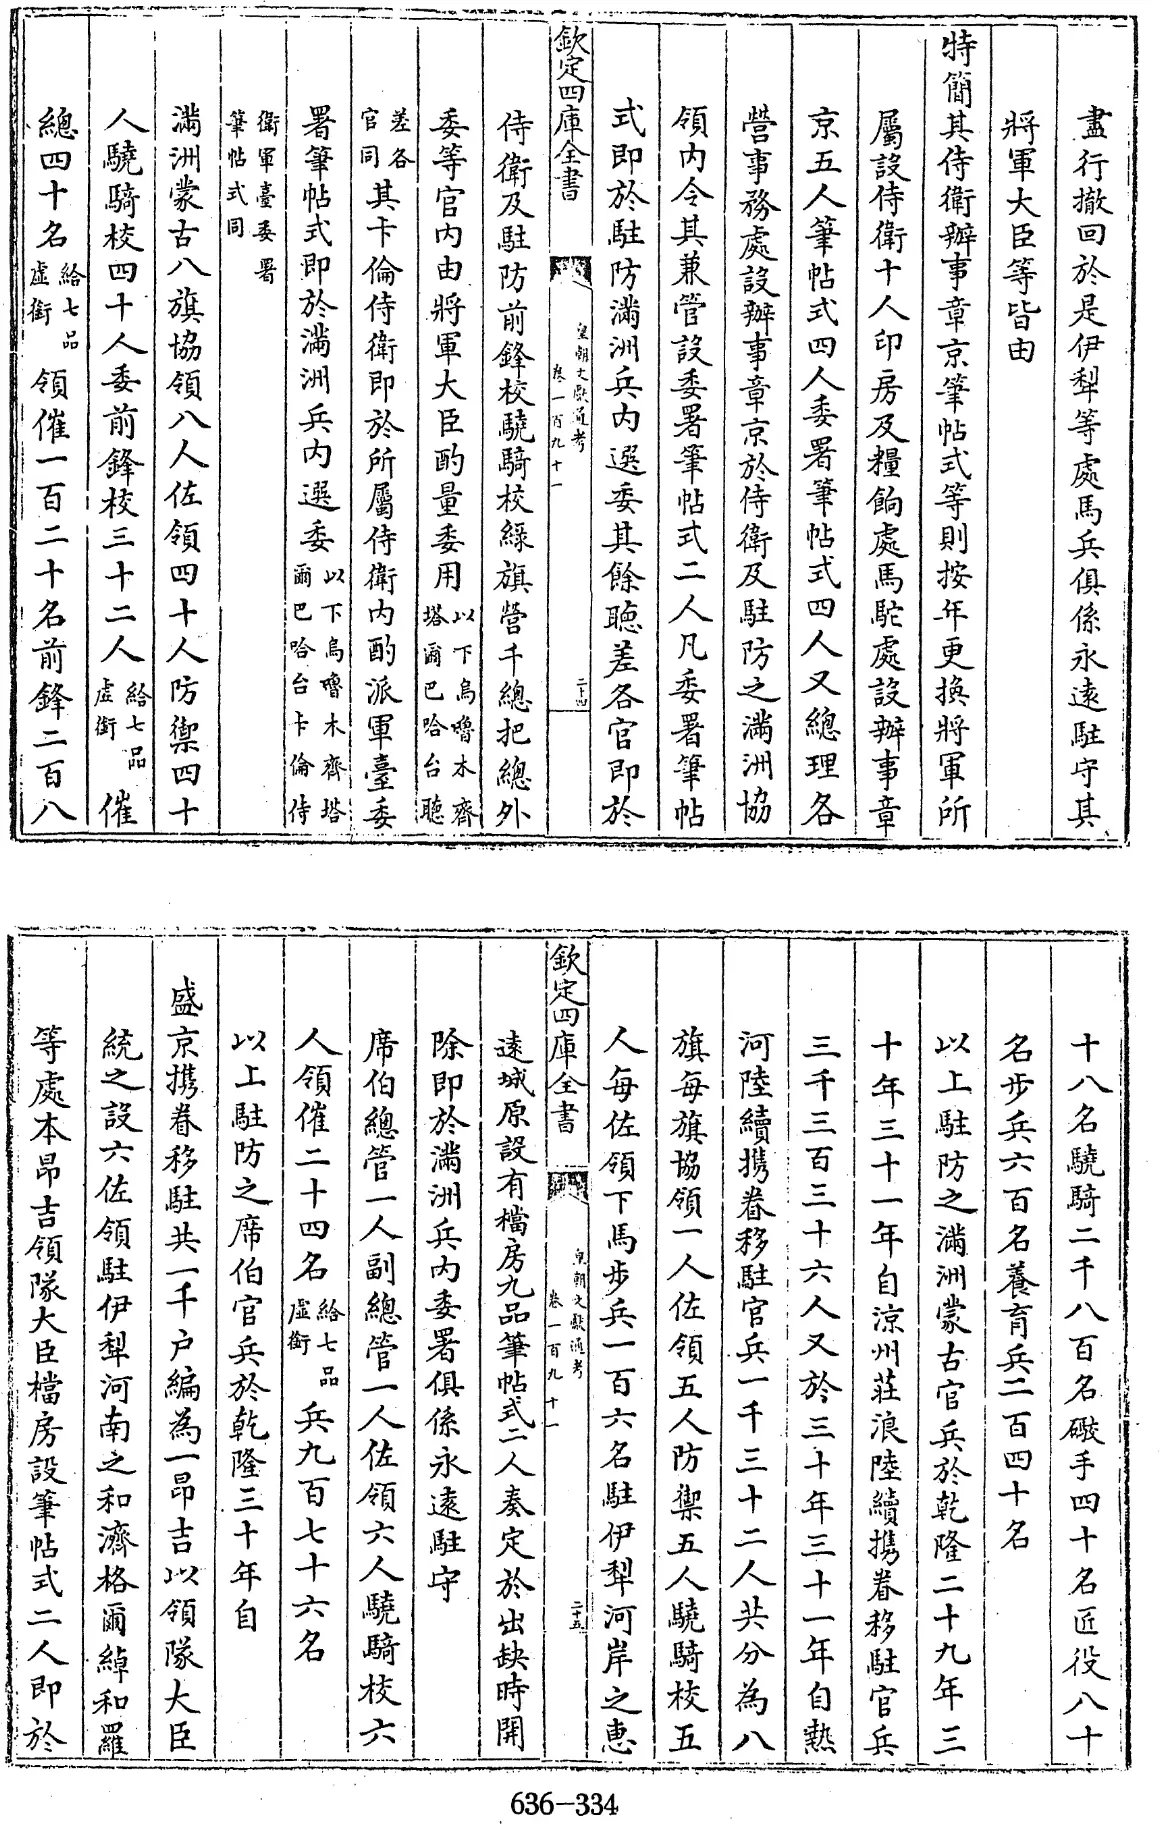 盡行撤回於是伊犁等處馬兵俱係永遠駐守其
將軍大臣等皆由
特簡其侍衛辦事章京筆帖式等則按年更換將軍所
屬設侍衛十人印房及糧餉處馬駝處設辦事章
京五人筆帖式四人委署筆帖式四人又總理各
營事務處設辦事章京於侍衛及駐防之滿洲協
領内令其兼管設委署筆帖式二人凡委署筆帖
式即於駐防滿洲兵内選委其餘聴差各官即於
欽定四庫全書
皇朝文獻通考
卷一百九十一
二十四
侍衛及駐防前鋒校驍騎校綠旗營千總把總外
委等官内由將軍大臣酌量委用以下烏嚕木齊
塔爾巴哈台聴
差各
官同其卡倫侍衛即於所屬侍衛内酌派軍臺委
署筆帖式即於滿洲兵内選委以下烏嚕木齊塔
爾巴哈台卡倫侍
衛軍臺委署
筆帖式同
滿洲蒙古八旗協領八人佐領四十人防禦四十
人驍騎校四十人委前鋒校三十二人給七品
虛銜催
總四十名給七品
虛銜領催一百二十名前鋒二百八
十八名驍騎二千八百名礮手四十名匠役八十
名步兵六百名養育兵二百四十名
以上駐防之滿洲蒙古官兵於乾隆二十九年三
十年三十一年自涼州莊浪陸續攜眷移駐官兵
三千三百三十六人又於三十年三十一年自熱
河陸續攜眷移駐官兵一千三十二人共分為八
旗每旗協領一人佐領五人防禦五人驍騎校五
人每佐領下馬步兵一百六名駐伊犁河岸之惠
欽定四庫全書
皇朝文獻通考
卷一百九十一
二十五
遠城原設有檔房九品筆帖式二人奏定於出缺時開
除即於滿洲兵内委署俱係永遠駐守
席伯總管一人副總管一人佐領六人驍騎校六
人領催二十四名給七品
虛銜兵九百七十六名
以上駐防之席伯官兵於乾隆三十年自
盛京攜眷移駐共一千户編為一昂吉以領隊大臣
統之設六佐領駐伊犁河南之和濟格爾綽和羅
等處本昂吉領隊大臣檔房設筆帖式二人即於
636-334